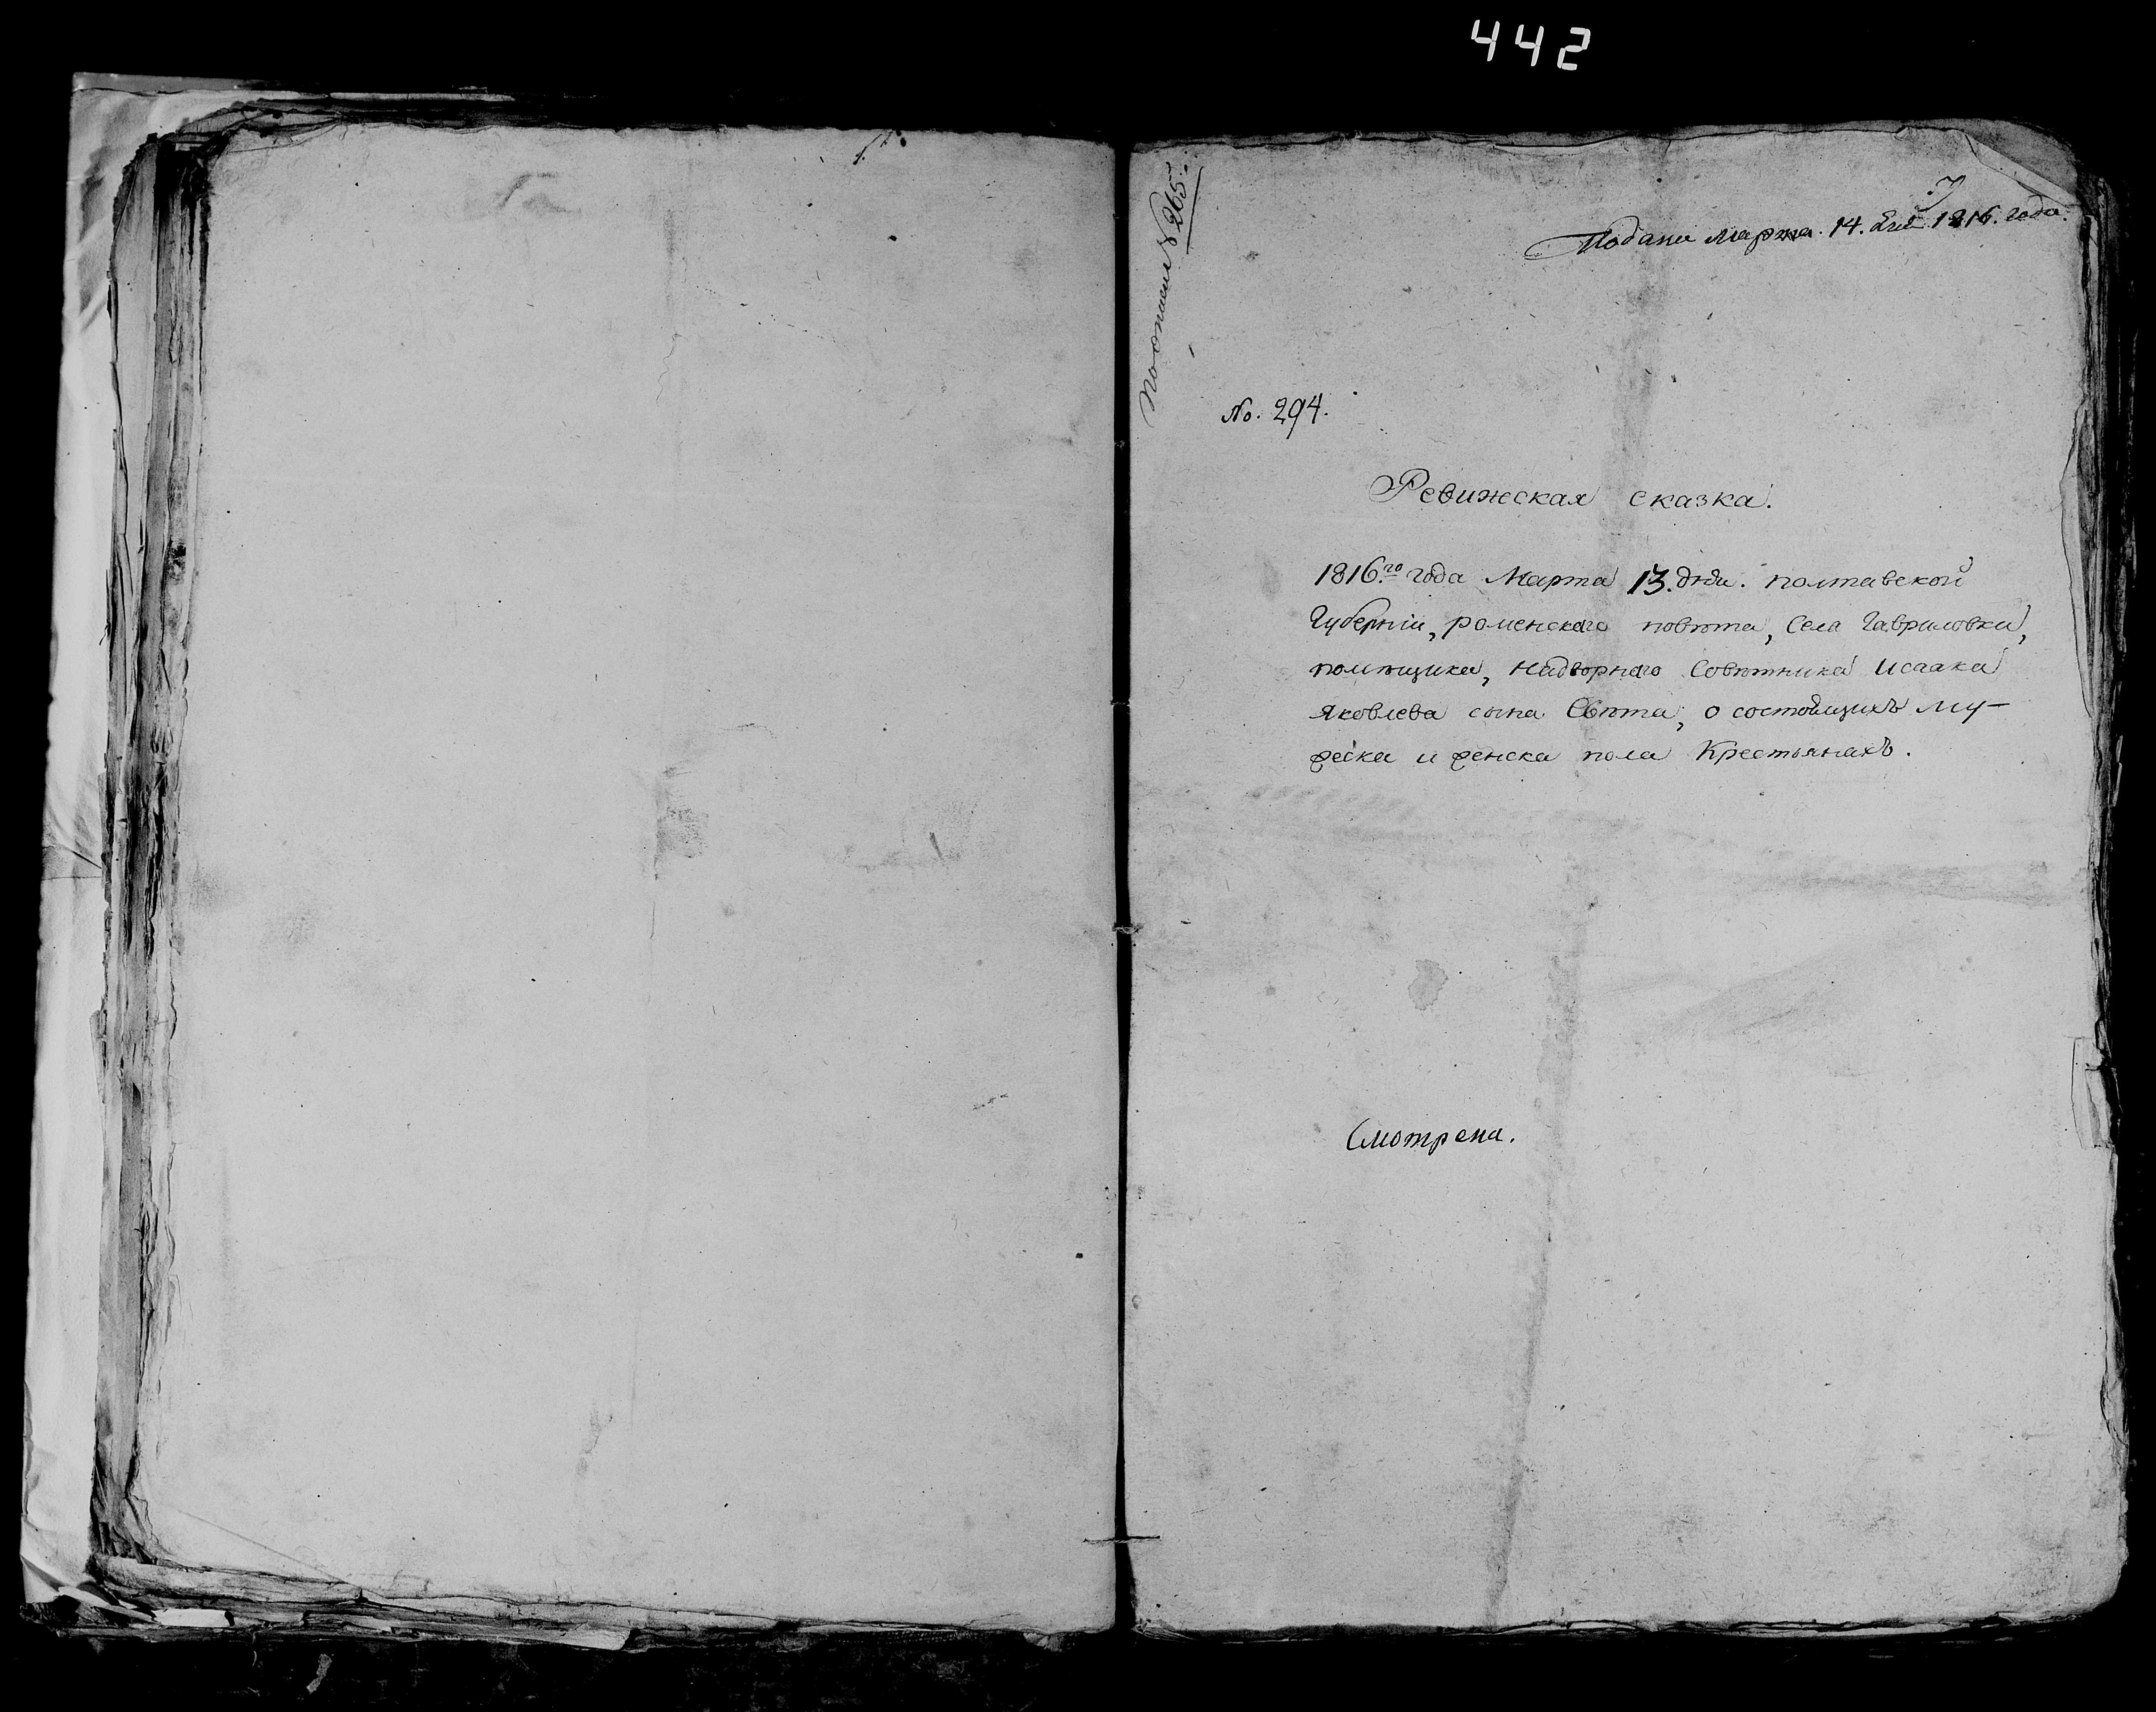 442
7
Подана Марта. 14. дня 1816. года.
По описи 8 265.
No. 294.
Ревижская сказка.
1816.го года Марта 13. дня. полтавской
Губерніи, роменского повѣта, Села Гавриловки,
помѣщика, Надворного Совѣтника Исаака
Яковлева сына Свѣта, о состоящихъ му-
жеска и женска пола Крестьянахъ.
Смотрена.